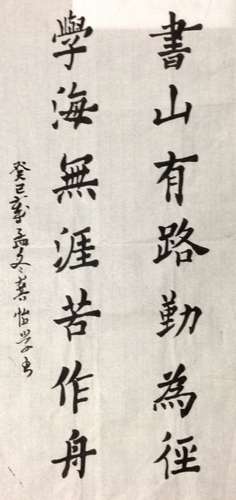 書山有路勤為徑
學海無涯苦作舟
癸巳歲孟冬